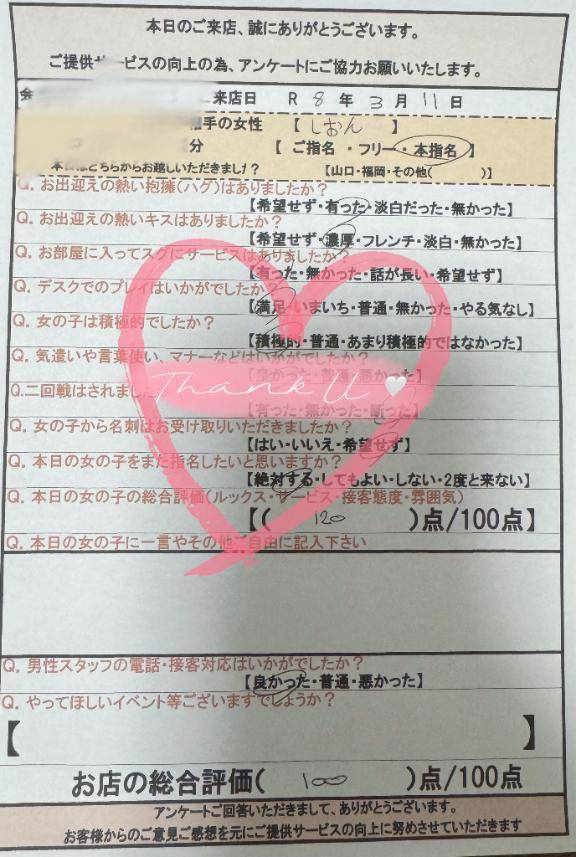 本日のご来店、誠にありがとうございます。
ご提供サービスの向上の為、アンケートにご協力お願いいたします。
ご来店日 R 8 年 3 月 11 日
手の女性 【 しおん 】
分 【 ご指名 ・ フリー ・ 本指名 】
本日はどちらからお越しいただきました? 【山口・福岡・その他( )】
Q. お出迎えの熱い抱擁(ハグ)はありましたか?
【希望せず・有った・淡白だった・無かった】
Q. お出迎えの熱いキスはありましたか?
【希望せず・濃厚・フレンチ・淡白・無かった】
Q. お部屋に入ってスグにサービスはありましたか?
【有った・無かった・話が長い・希望せず】
Q. デスクでのプレイはいかがでしたか?
【満足・いまいち・普通・無かった・やる気なし】
Q. 女の子は積極的でしたか?
【積極的・普通・あまり積極的ではなかった】
Q. 気遣いや言葉使い、マナーなどはいかがでしたか?
【良かった・普通・悪かった】
Q.二回戦はされまし
【有った・無かった・断った】
Thank U
Q. 女の子から名刺はお受け取りいただきましたか?
【はい・いいえ・希望せず】
Q. 本日の女の子をまた指名したいと思いますか?
【絶対する・してもよい・しない・2度と来ない】
Q. 本日の女の子の総合評価(ルックス・サービス・接客態度・雰囲気)
【( 120 )点/100点】
Q. 本日の女の子に一言やその他ご自由に記入下さい
Q. 男性スタッフの電話・接客対応はいかがでしたか?
【良かった・普通・悪かった】
Q. やってほしいイベント等ございますでしょうか?
【 】
お店の総合評価( 100 )点/100点
アンケートご回答いただきまして、ありがとうございます。
お客様からのご意見ご感想を元にご提供サービスの向上に努めさせていただきます